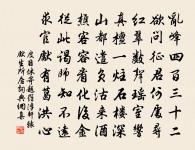 亂峰四百三十二
欲問征君何處尋
紅翠數聲瑤室響
真檀一炷石樓深
山都遣負沽來酒
樵客容看化後金
從此謁師知不遠
求官獻有葛洪心
皮日休寄題羅浮軒轅
獻生所居詞典網集